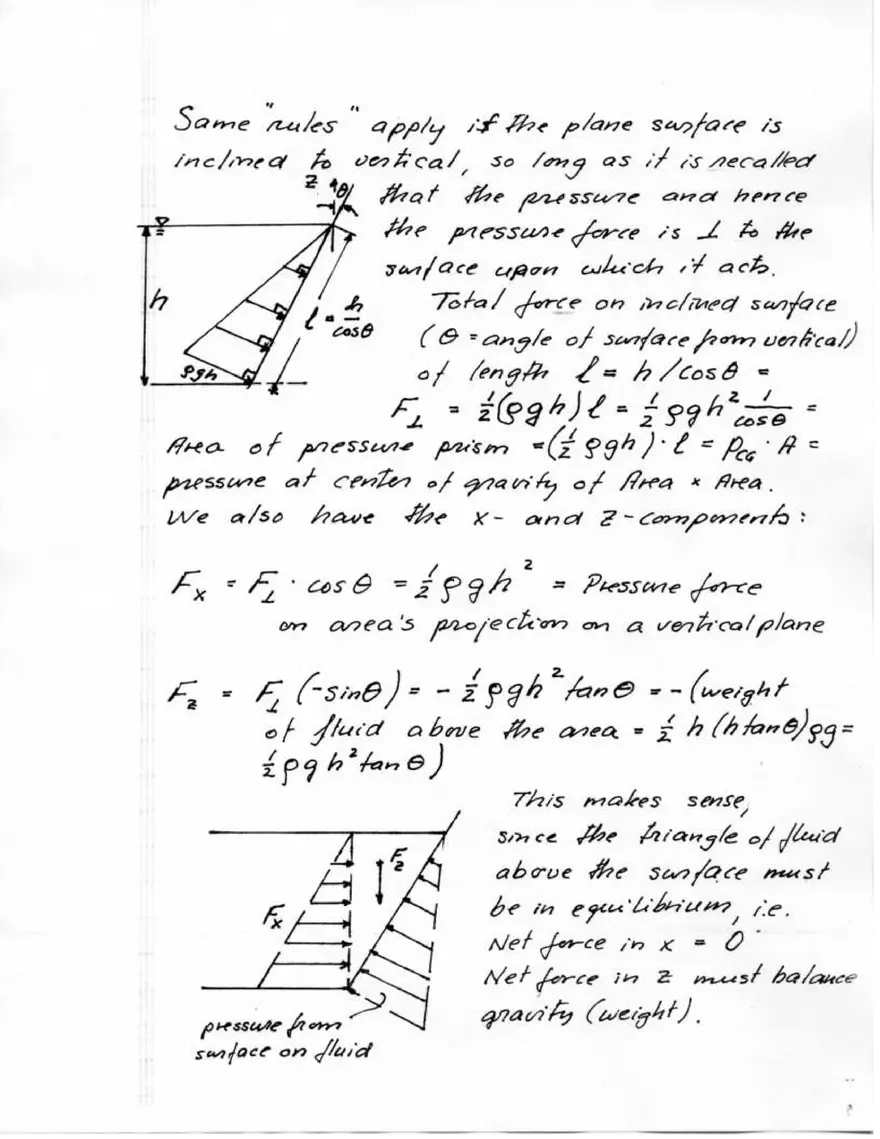 Same "rules" apply if the plane surface is
inclined to vertical, so long as it is recalled
that the pressure and hence
the pressure force is ⊥ to the
surface upon which it acts.
z θ
h
ρgh
l = h/cosθ
Total force on inclined surface
(θ = angle of surface from vertical)
of length l = h/cosθ =
F⊥ = ½(ρgh)l = ½ρgh² 1/cosθ =
Area of pressure prism = (½ρgh)·l = p_CG · A =
pressure at center of gravity of Area × Area.
We also have the x- and z-components:
Fx = F⊥ · cosθ = ½ρgh² = Pressure force
on area's projection on a vertical plane
Fz = F⊥(-sinθ) = -½ρgh² tanθ = -(weight
of fluid above the area = ½ h(h tanθ)ρg =
½ρgh² tanθ)
This makes sense,
since the triangle of fluid
above the surface must
be in equilibrium, i.e.
Net force in x = 0
Net force in z must balance
gravity (weight).
Fx
Fz
pressure from
surface on fluid